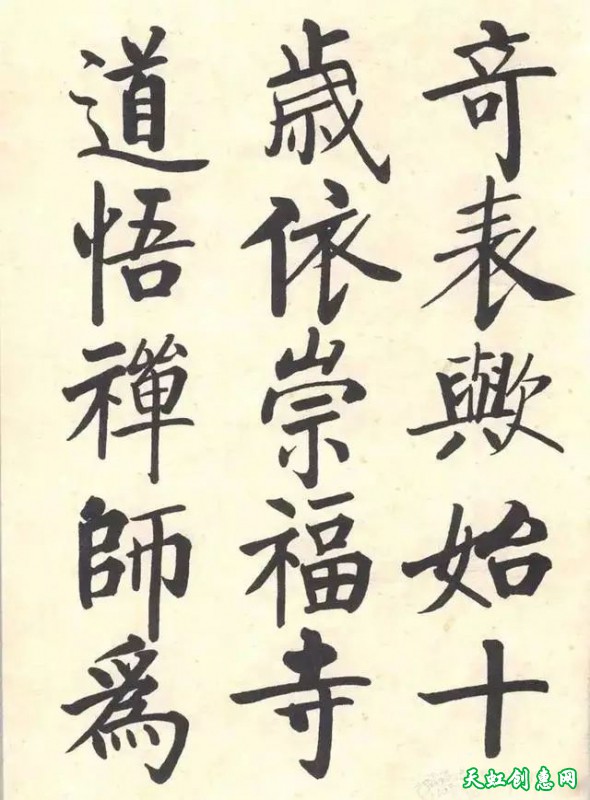 奇表歟始十
歲依崇福寺
道悟禪師爲
天虹创惠网